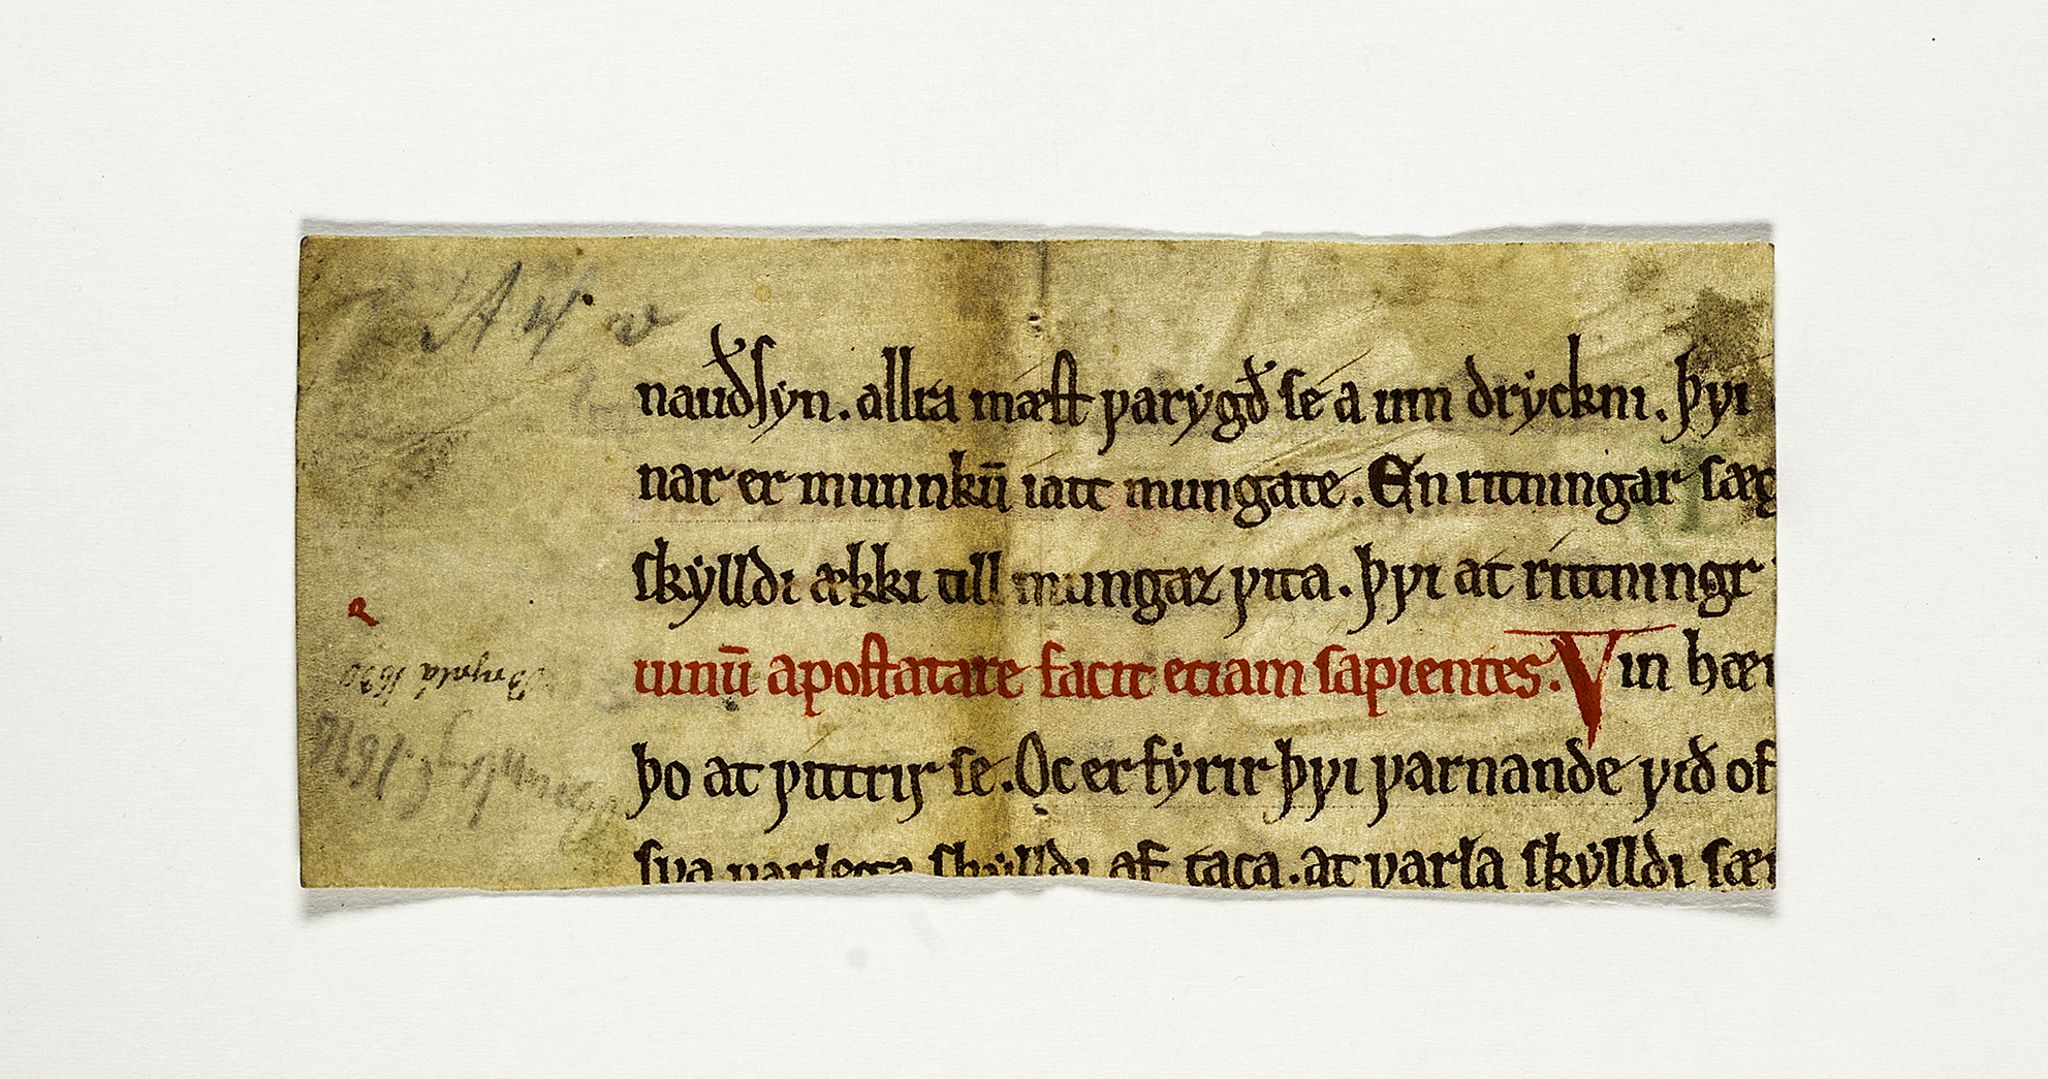 nauðsyn. allra mæst varygð se a um dryckni. þvi
nar er munnkū iatt mungate. En rittningar sæg
skylldi ækki till mungaz vita. þvi at rittningr
uinū apostatare facit etiam sapientes. Vin hæi
þo at vittrir se. Oc er fyrir þvi varnande við of
sva varlega skylldi af taca. at varla skylldi sæi
1630